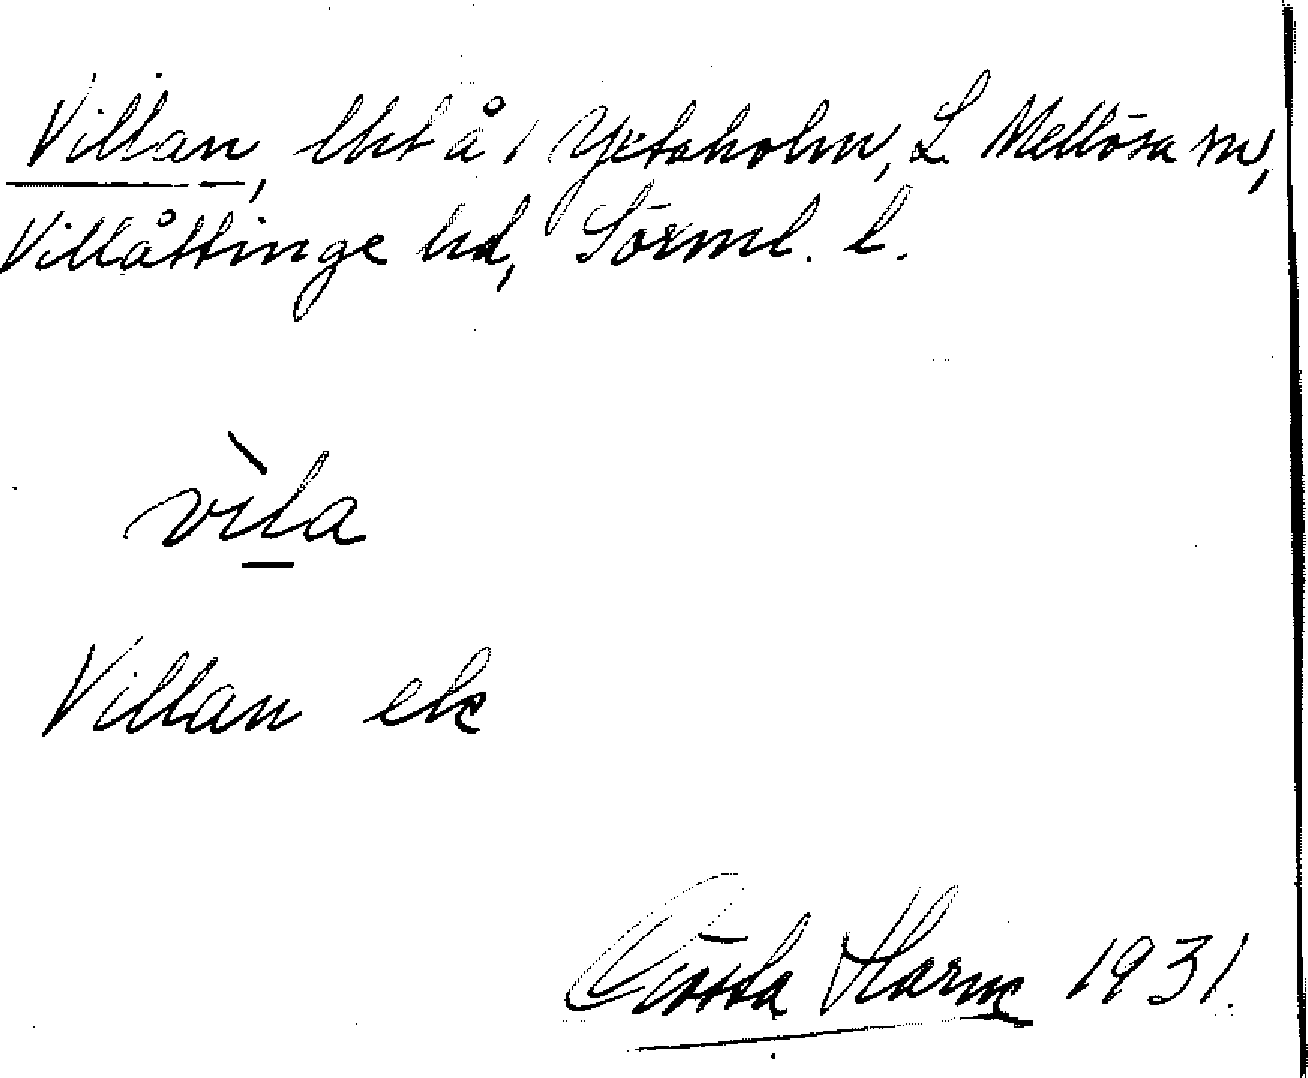 Villan, lht å 1 Yxtaholm, L. Mellösa sn,
Villåttinge hd, Sörml. l.
vìla
Villan ek
Gösta Harm 1931.